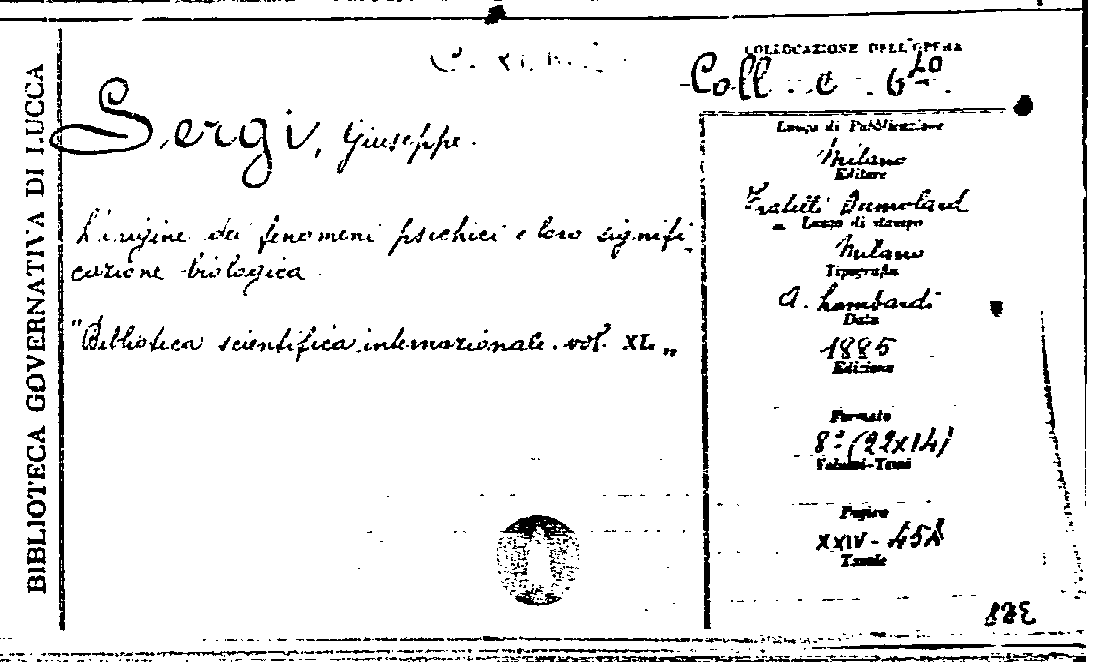 BIBLIOTECA GOVERNATIVA DI LUCCA
COLLOCAZIONE DELL'OPERA
Coll. C
Sergi, Giuseppe.
L'origine dei fenomeni psichici e loro signifi-
cazione biologica
"Biblioteca scientifica internazionale. vol. XL „
Luogo di Pubblicazione
Milano
Editore
Fratelli Dumolard
Luogo di stampa
Milano
Tipografia
A. Lombardi
Data
1885
Edizione
Formato
8° (22x14)
Volumi-Tomi
Pagine
XXIV-
Tavole